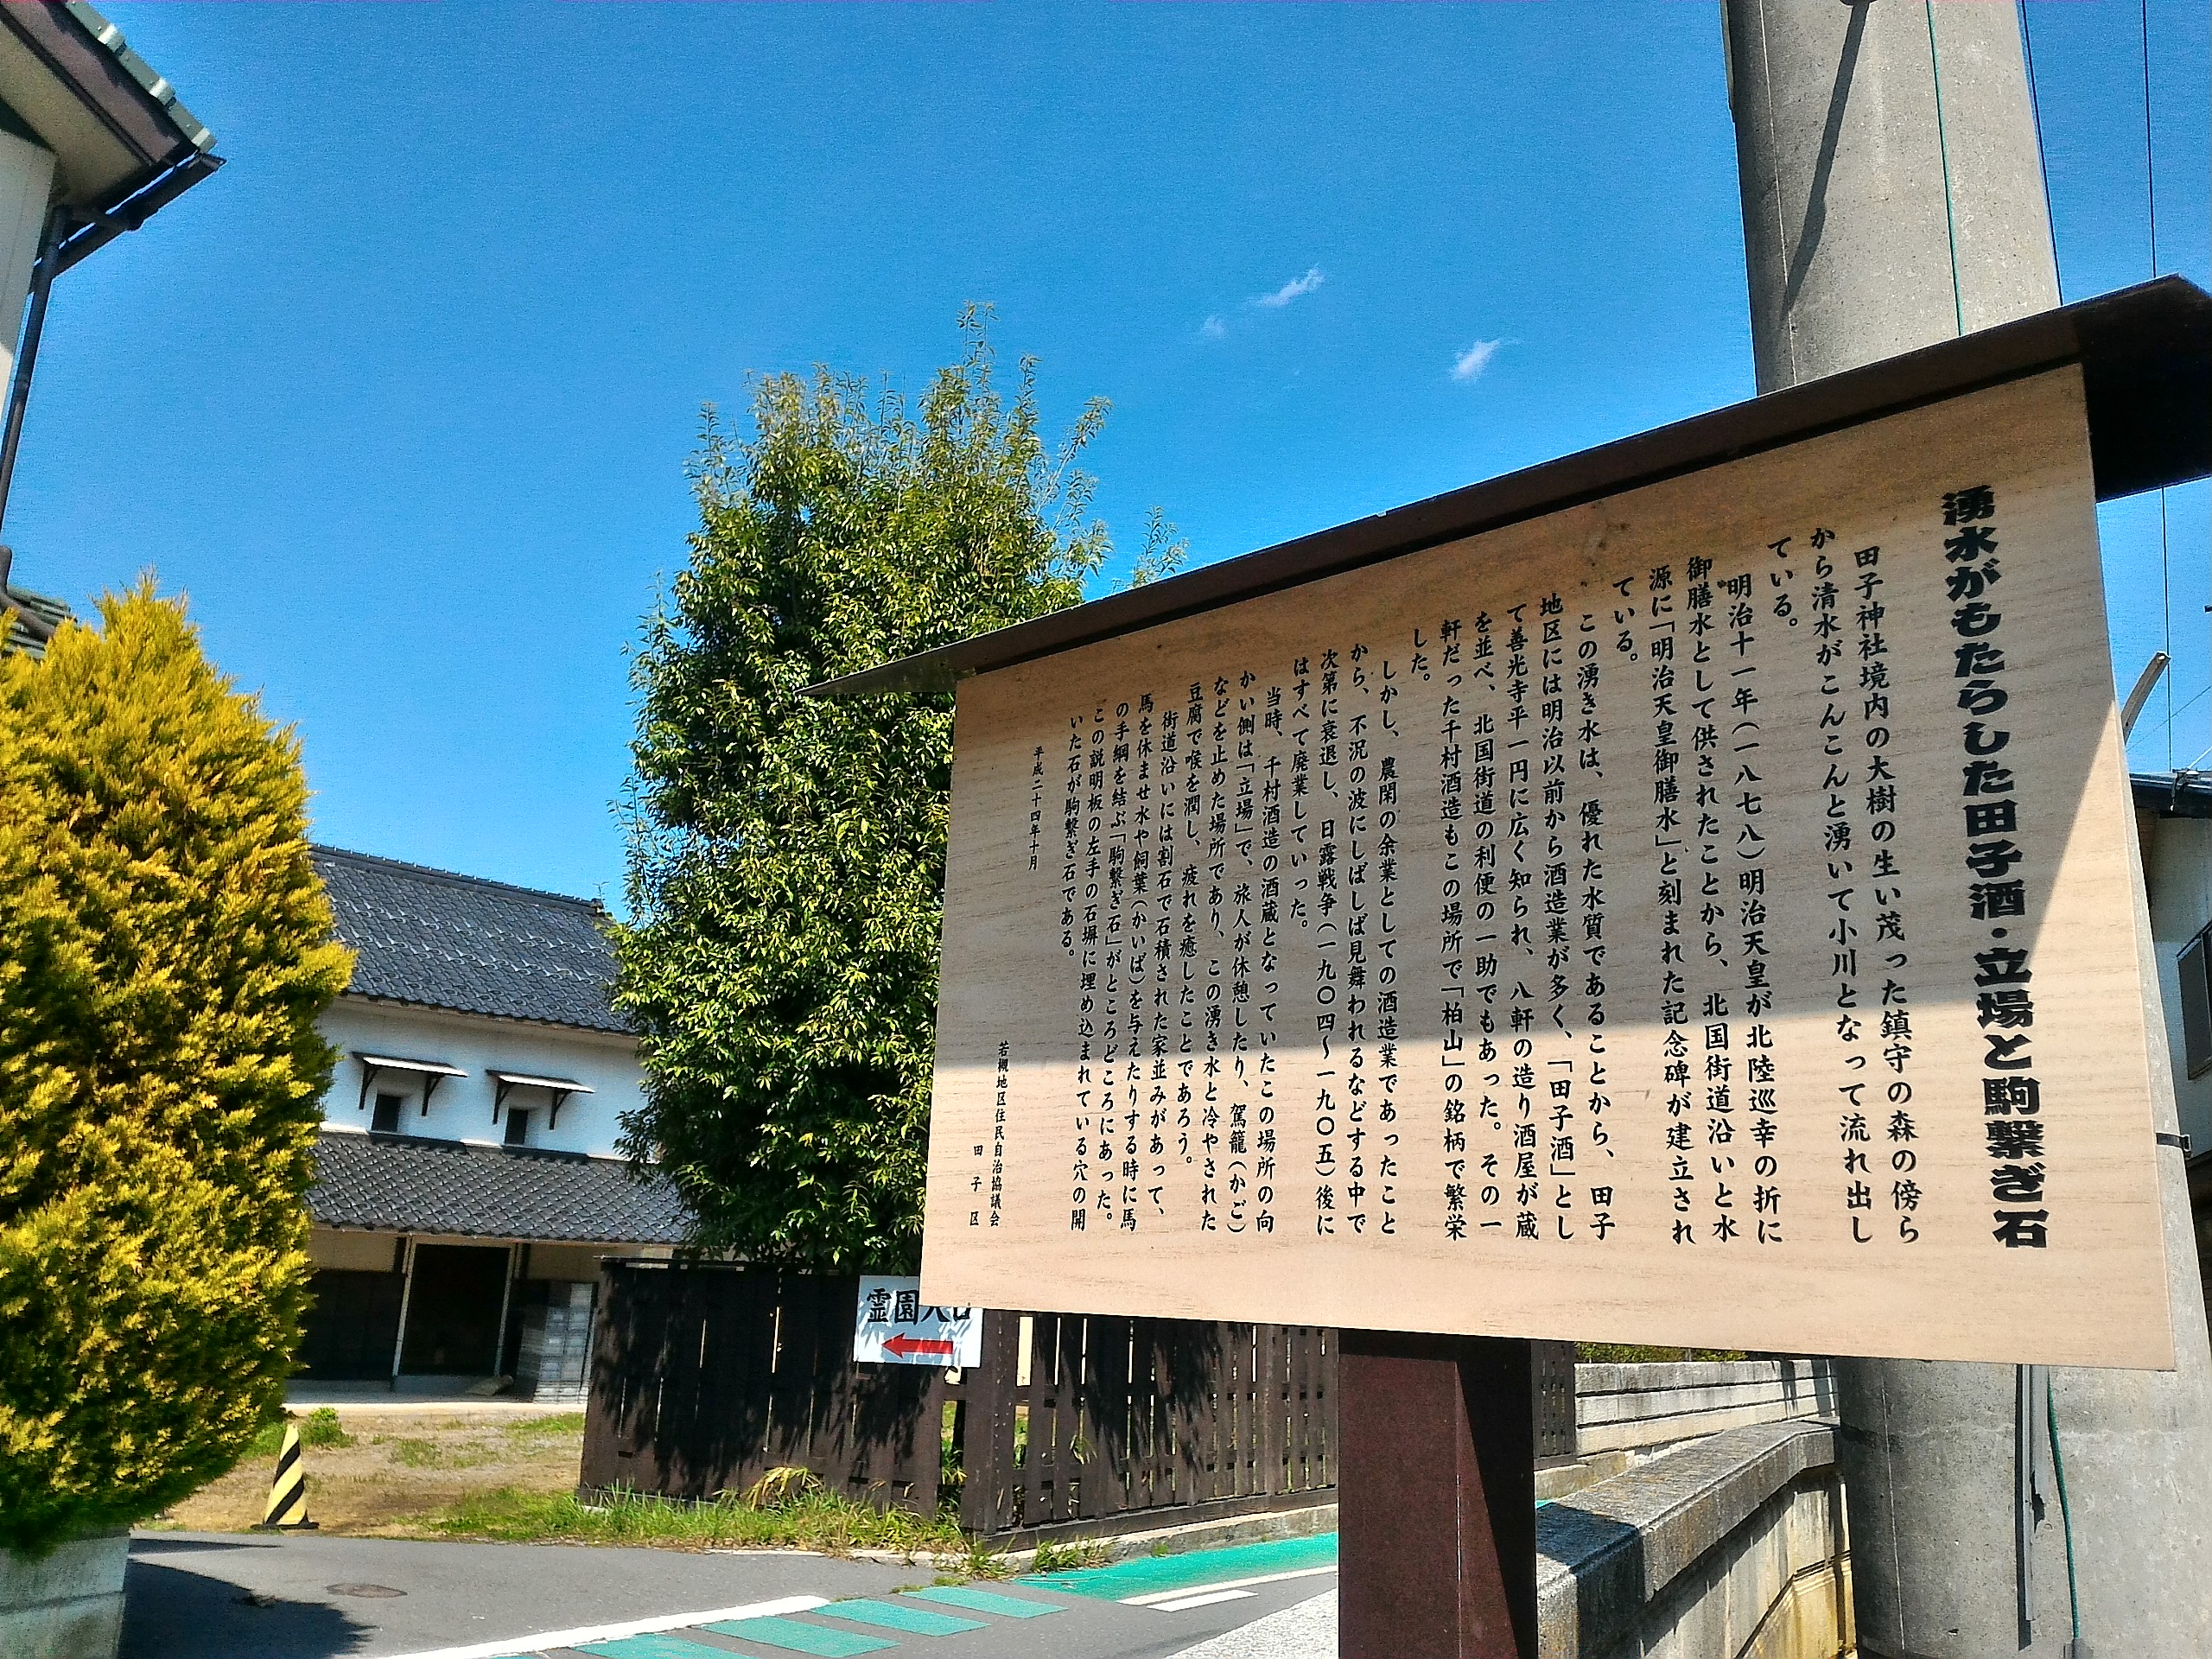 湧水がもたらした田子酒・立場と駒繋ぎ石
田子神社境内の大樹の生い茂った鎮守の森の傍ら
から清水がこんこんと湧いて小川となって流れ出し
ている。
明治十一年(一八七八)明治天皇が北陸巡幸の折に
御膳水として供されたことから、北国街道沿いと水
源に「明治天皇御膳水」と刻まれた記念碑が建立され
ている。
この湧き水は、優れた水質であることから、田子
地区には明治以前から酒造業が多く、「田子酒」とし
て善光寺平一円に広く知られ、八軒の造り酒屋が蔵
を並べ、北国街道の利便の一助でもあった。その一
軒だった千村酒造もこの場所で「柏山」の銘柄で繁栄
した。
しかし、農閑の余業としての酒造業であったこと
から、不況の波にしばしば見舞われるなどする中で
次第に衰退し、日露戦争(一九〇四〜一九〇五)後に
はすべて廃業していった。
当時、千村酒造の酒蔵となっていたこの場所の向
かい側は「立場」で、旅人が休憩したり、駕籠(かご)
などを止めた場所であり、この湧き水と冷やされた
豆腐で喉を潤し、疲れを癒したことであろう。
街道沿いには割石で石積された家並みがあって、
馬を休ませ水や飼葉(かいば)を与えたりする時に馬
の手綱を結ぶ「駒繋ぎ石」がところどころにあった。
この説明板の左手の石塀に埋め込まれている穴の開
いた石が駒繋ぎ石である。
平成二十四年十月
若槻地区住民自治協議会
田子区
霊園入口